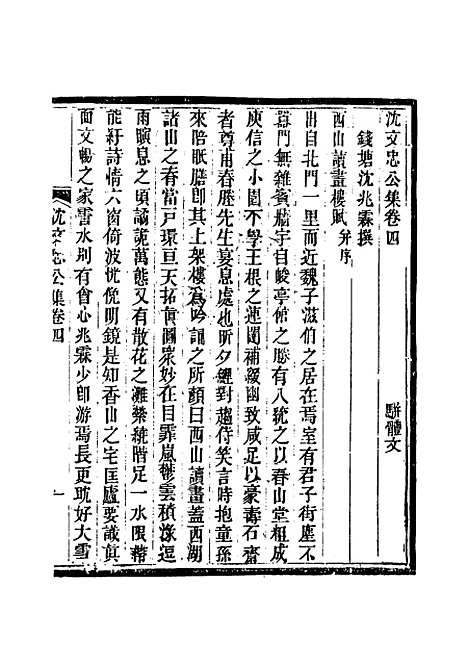 沈文忠公集卷四
錢塘沈兆霖撰　駢體文
西山讀畫樓賦并序
出自北門一里而近魏子滋伯之居在焉室有君子街塵不
囂門無雜賓牆宇自峻亭館之勝有八統之以春山堂粗成
庾信之小園不學王根之連閣補綴幽致咸足以豪壽石齋
者尊甫春塍先生宴息處也昕夕鯉對趨侍笑言時抱童孫
來陪眠膳卽其上架樓為吟諷之所顏曰西山讀畫蓋西湖
諸山之春當戸環亘天拓眞圖衆妙在目霏嵐鬱雲積豫逗
雨曠息之頃譎詭萬態又有散花之灘縈繞階足一水限帶
能紆詩情六窗倚波恍俛明鏡是知香山之宅匡廬要識眞
面文暢之家霅水別有會心兆霖少卽游焉長更耽好大雪
沈文忠公集卷四
一